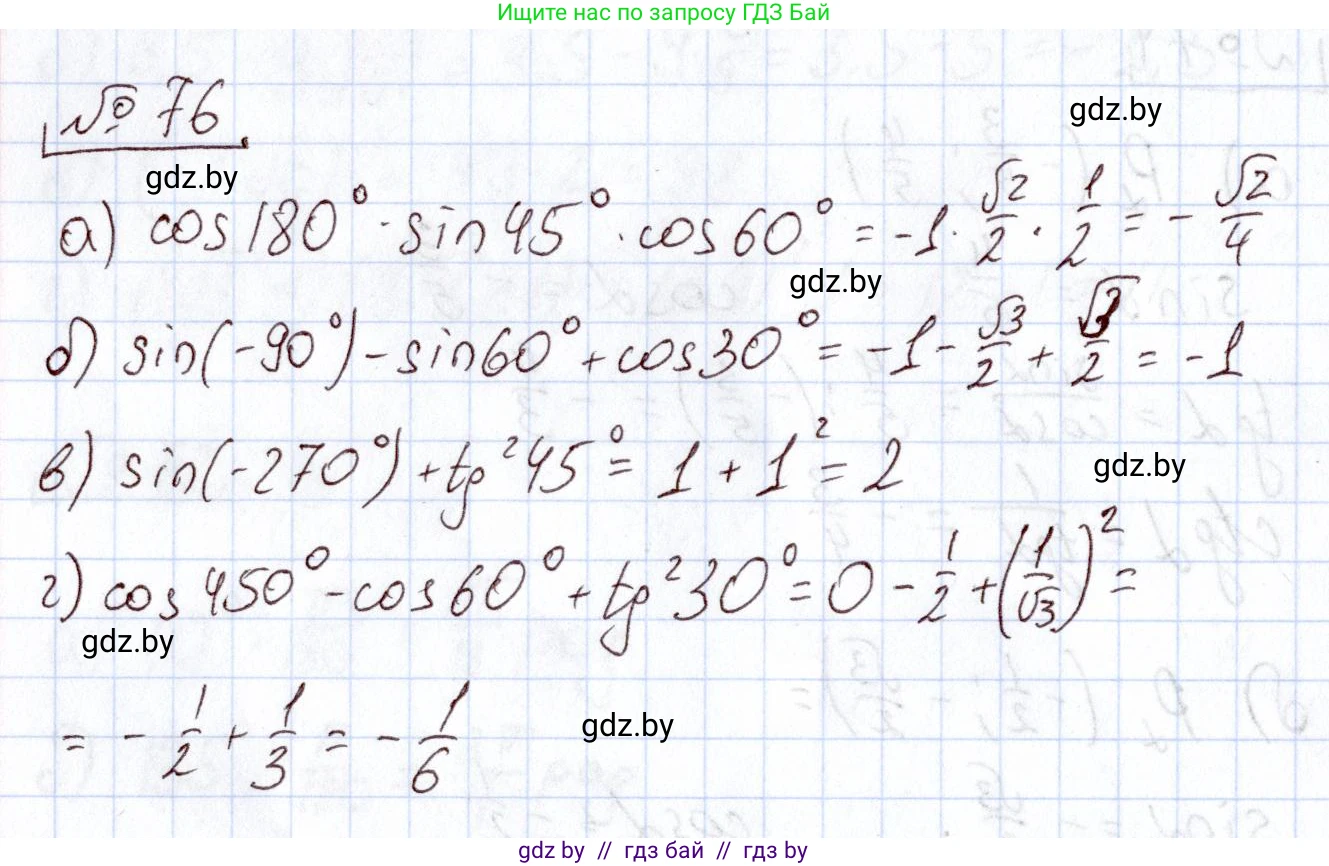 Ищите нас по запросу ГДЗ Бай
№ 76
gdz.by
gdz.by
а) cos 180° · sin 45° · cos 60° = -1 · √2/2 · 1/2 = - √2/4
gdz.by
б) sin(-90°) - sin 60° + cos 30° = -1 - √3/2 + √3/2 = -1
в) sin(-270°) + tg² 45° = 1 + 1² = 2
gdz.by
г) cos 450° - cos 60° + tg² 30° = 0 - 1/2 + (1/√3)² =
gdz.by
= - 1/2 + 1/3 = - 1/6
gdz.by
gdz by // гдз бай // gdz by